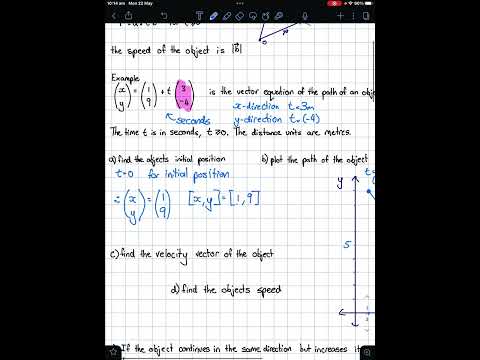 10:14 am Mon 22 May
90%
the speed of the object is |b|
Example
(x y) = (1 9) + t (3 -4) is the vector equation of the path of an obj
seconds
x-direction t=3m
y-direction t=(-4)
The time t is in seconds, t ⩾0. The distance units are metrics.
a) find the objects initial position
b) plot the path of the object
t=0 for initial position
∴ (x y) = (1 9) [x,y] = [1,9]
y
5
c) find the velocity vector of the object
d) find the objects speed
If the object continues in the same direction but increases it